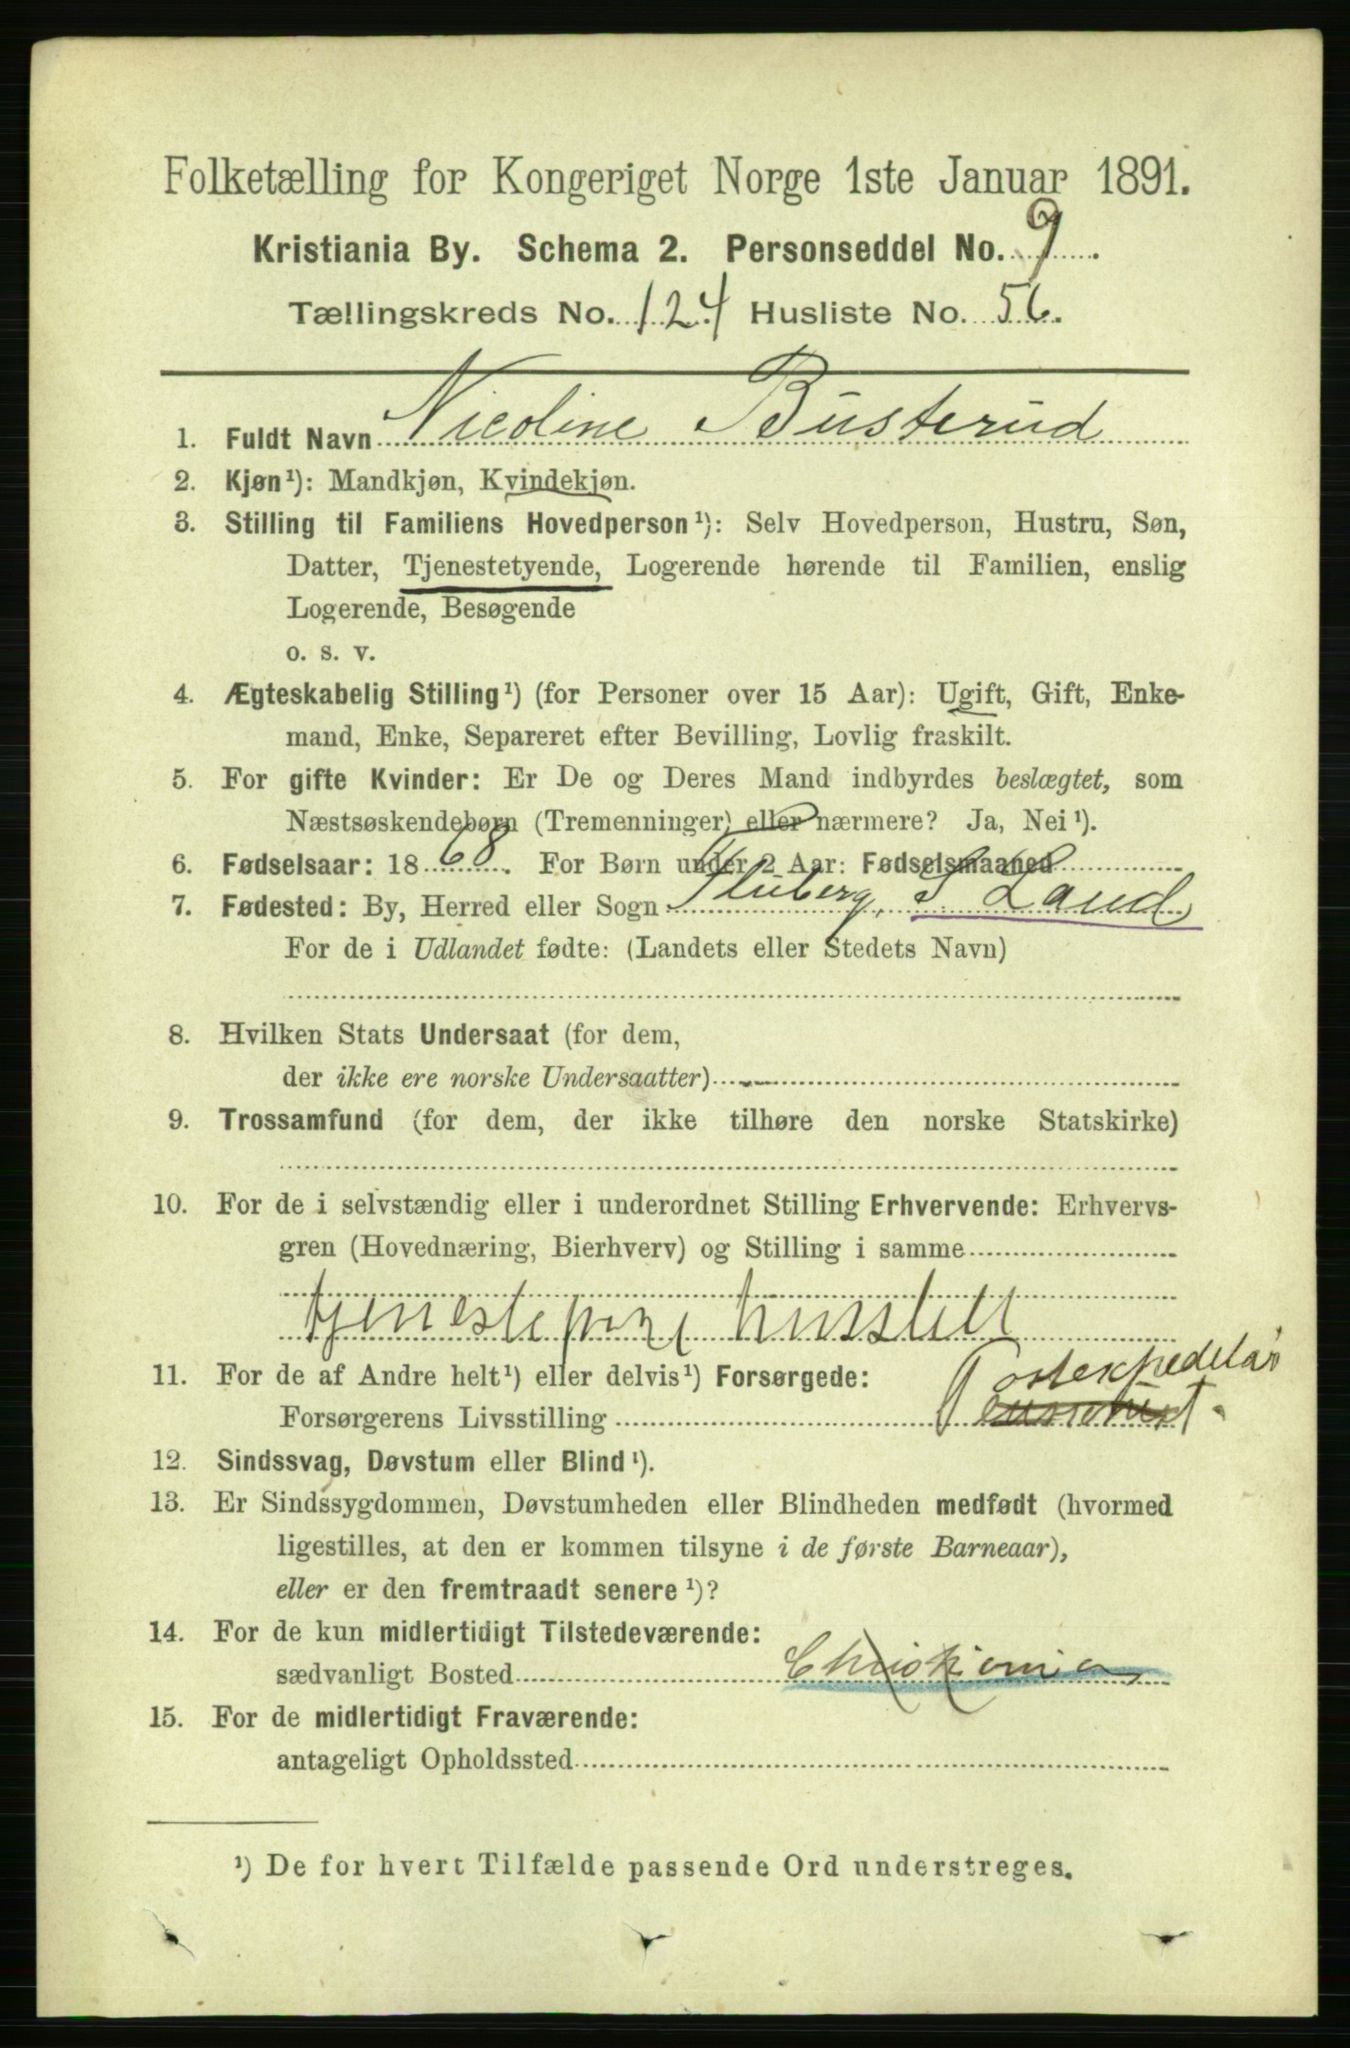 Folketælling for Kongeriget Norge 1ste Januar 1891.
Kristiania By. Schema 2. Personseddel No. 9.
Tællingskreds No. 124 Husliste No. 56.
1. Fuldt Navn Nicoline Busterud
2. Kjøn¹): Mandkjøn, Kvindekjøn.
3. Stilling til Familiens Hovedperson¹): Selv Hovedperson, Hustru, Søn,
Datter, Tjenestetyende, Logerende hørende til Familien, enslig
Logerende, Besøgende
o. s. v.
4. Ægteskabelig Stilling¹) (for Personer over 15 Aar): Ugift, Gift, Enke-
mand, Enke, Separeret efter Bevilling, Lovlig fraskilt.
5. For gifte Kvinder: Er De og Deres Mand indbyrdes beslægtet, som
Næstsøskendebørn (Tremenninger) eller nærmere? Ja, Nei¹).
6. Fødselsaar: 1868. For Børn under 2 Aar: Fødselsmaaned
7. Fødested: By, Herred eller Sogn Fluberg, S. Land
For de i Udlandet fødte: (Landets eller Stedets Navn)
8. Hvilken Stats Undersaat (for dem,
der ikke ere norske Undersaatter)
9. Trossamfund (for dem, der ikke tilhøre den norske Statskirke)
10. For de i selvstændig eller i underordnet Stilling Erhvervende: Erhvervs-
gren (Hovednæring, Bierhverv) og Stilling i samme
tjenestepige husstell
11. For de af Andre helt¹) eller delvis¹) Forsørgede:
Postexpeditør
Forsørgerens Livsstilling
12. Sindssvag, Døvstum eller Blind¹).
13. Er Sindssygdommen, Døvstumheden eller Blindheden medfødt (hvormed
ligestilles, at den er kommen tilsyne i de første Barneaar),
eller er den fremtraadt senere¹)?
14. For de kun midlertidigt Tilstedeværende:
sædvanligt Bosted Christiania
15. For de midlertidigt Fraværende:
antageligt Opholdssted
¹) De for hvert Tilfælde passende Ord understreges.